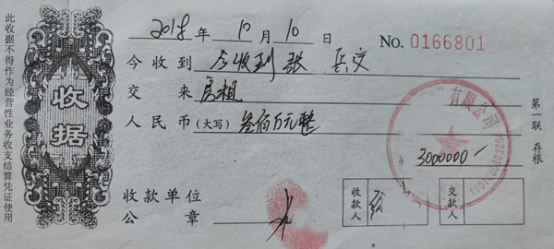 此收据不得作为经营性业务收支结算凭证使用
收据
2018年10月10日 No. 0166801
今收到 今收到张兵交
交来 房租
人民币(大写) 叁佰万元整
3000000
有限公司
第一联 存根
收款单位
公章
收款人
交款人